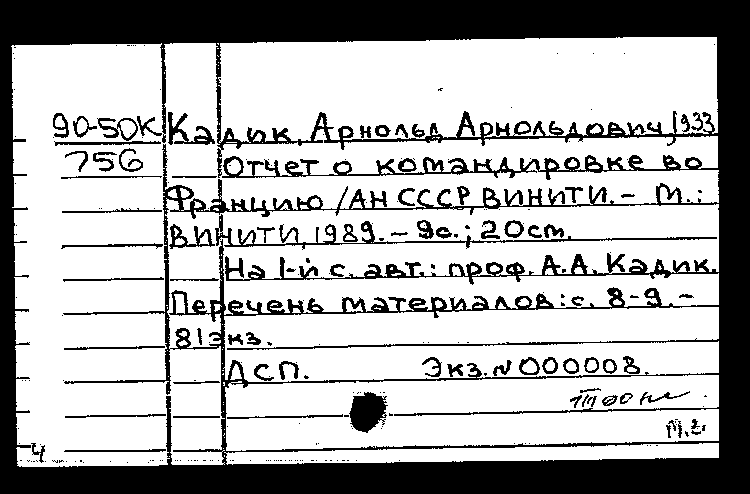 90-50К Кадик, Арнольд Арнольдович, 1933
756 Отчет о командировке во
Францию /АН СССР, ВИНИТИ. – М.:
ВИНИТИ, 1989. – 9с.; 20см.
На 1-й с. авт.: проф. А.А. Кадик.
Перечень материалов: с. 8-9. –
81экз.
ДСП. Экз. N 000008.
ч